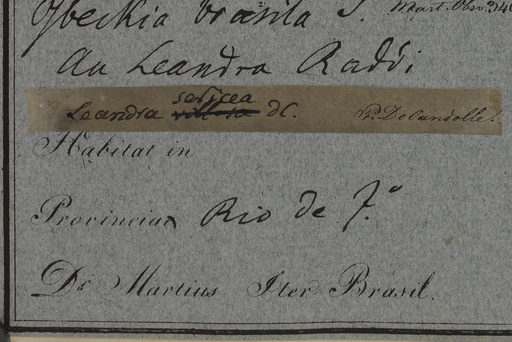 brasila
Mart. Obs. 346
An Leandra Raddi
Leandra sericea villosa DC. P. Decandolle!
Habitat in
Provincia Rio de J.º
Dr. Martius Iter Brasil.